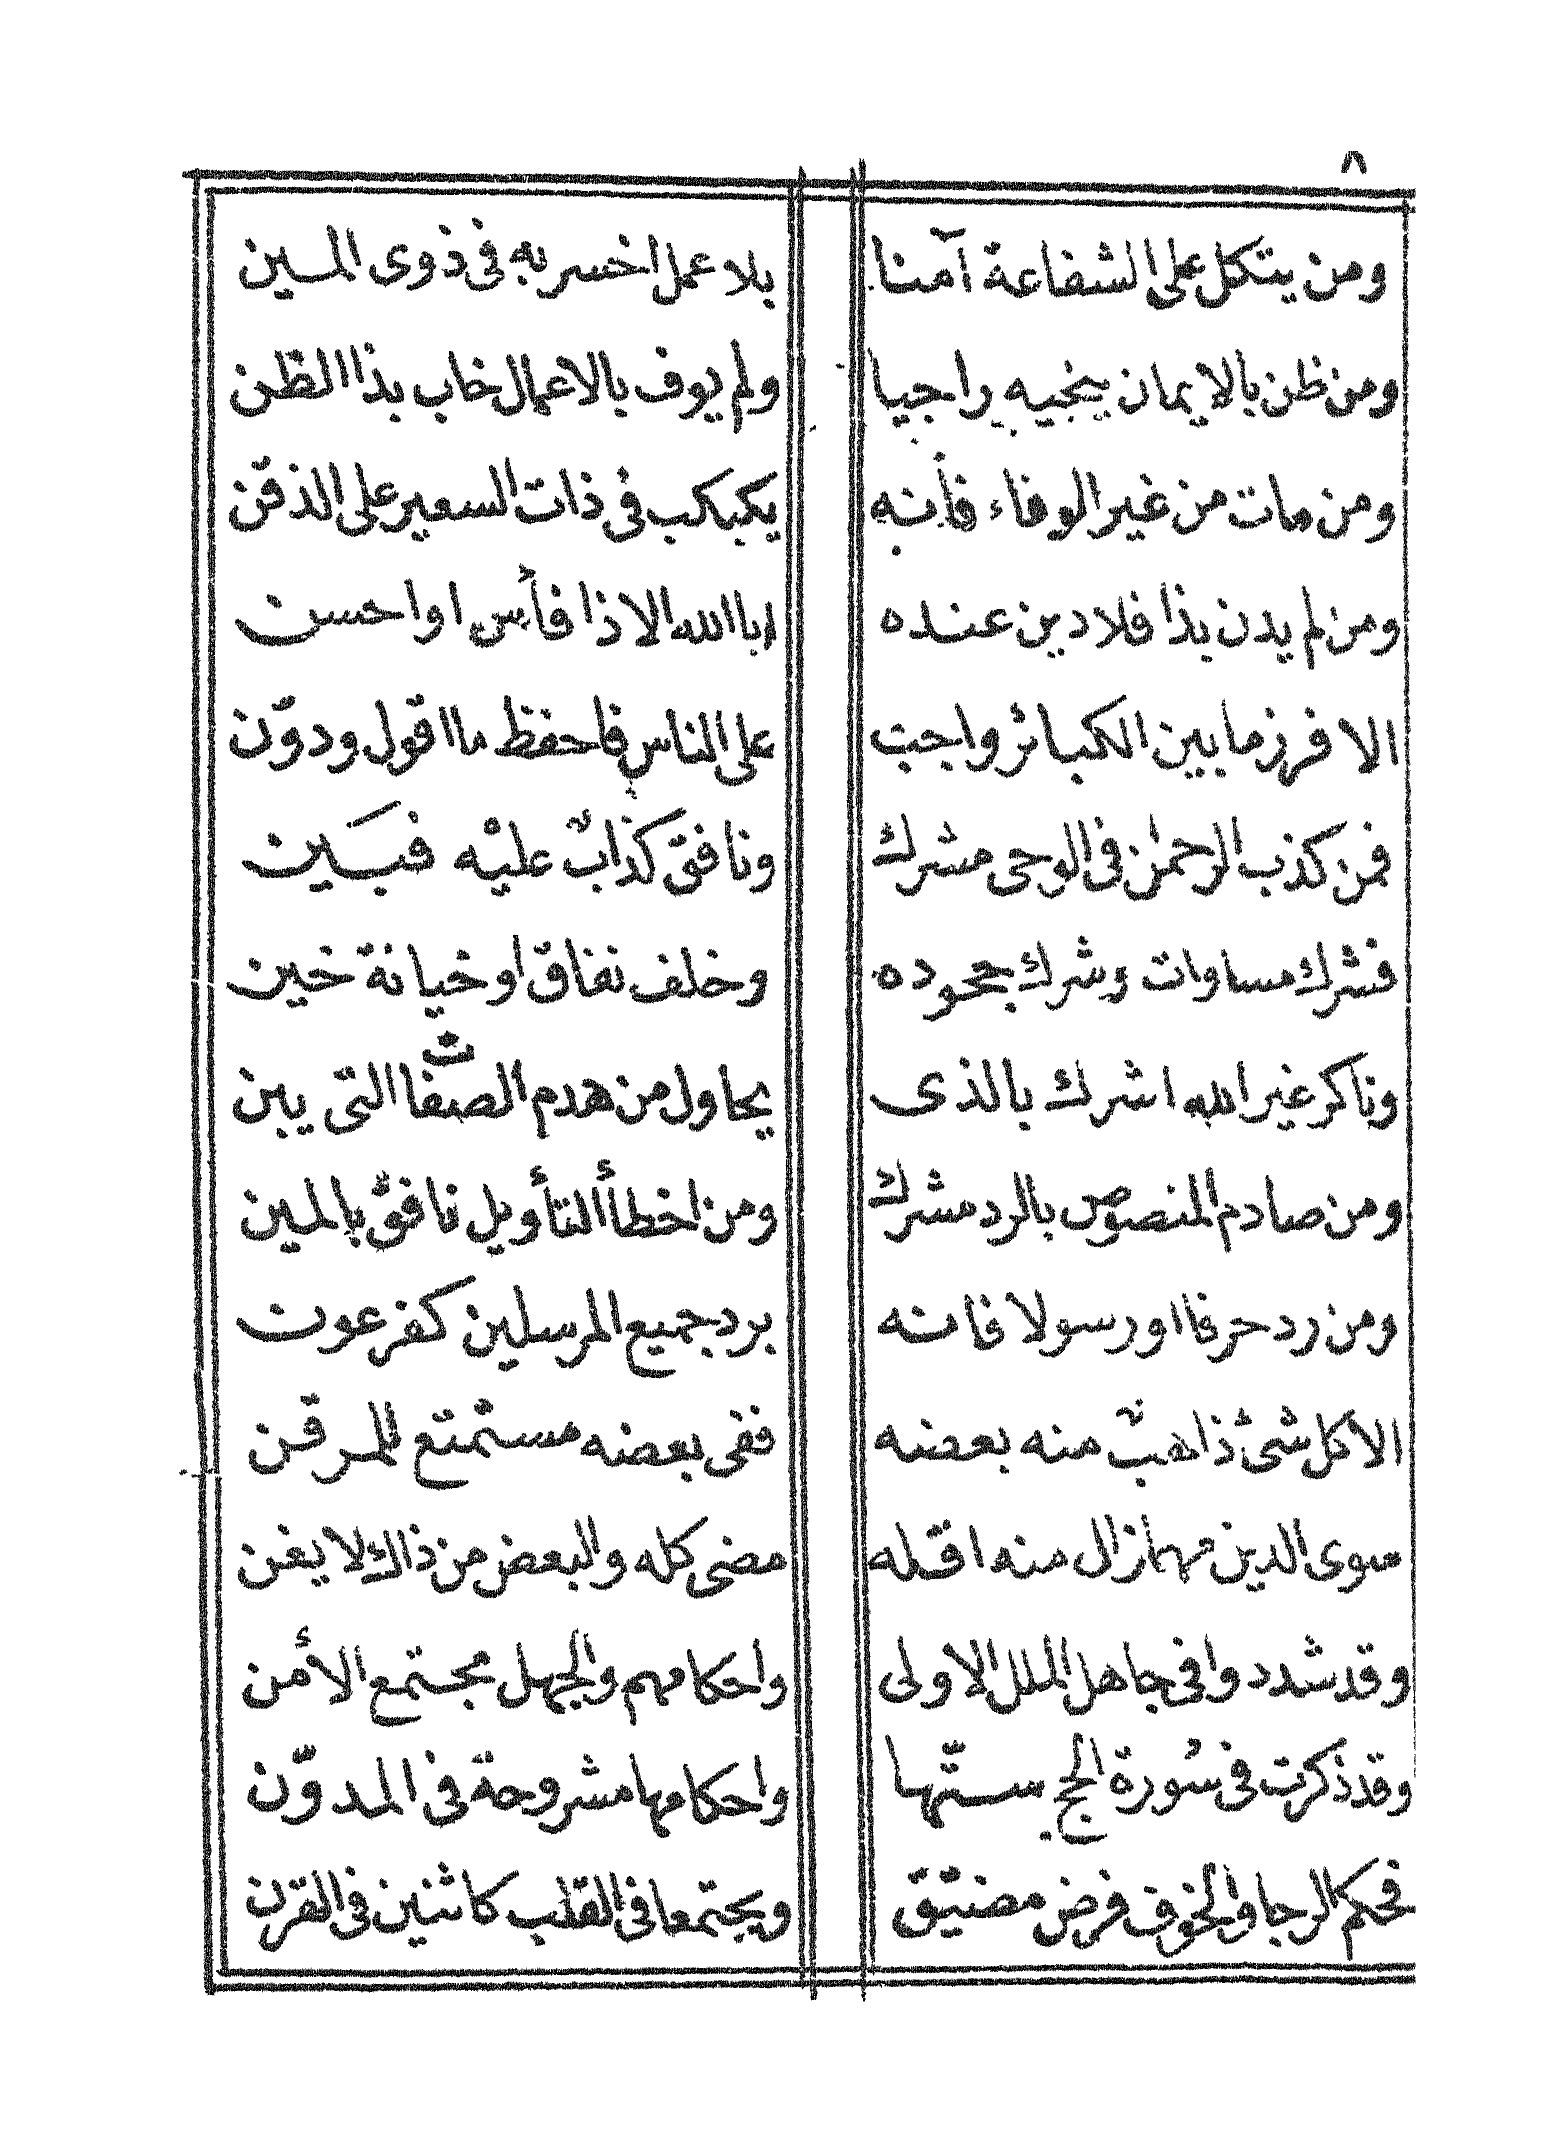 ٨
ومن يتكل على الشفاعة آمنا بلا عمل اخسر به فى ذوى المين
ومن ظن بالايمان ينجيه راجيا ولم يوف بالاعمال خاب بذا الظن
ومن مات من غير الوفاء فأنه يكبكب فى ذات السعير على الذقن
ومن لم يدن بذا فلا دين عنده ابا الله الا ذا فأس او احسن
الا فرز ما بين الكبائر واجب على الناس فاحفظ ما اقول ودوّن
فمن كذب الرحمٰن فى الوحى مشرك ونافق كذابٌ عليه فبَين
فشرك مساوات وشرك جحوده وخلف نفاق او خيانة خين
وناكر غير الله اشرك بالذى يحاول من هدم الصفات التى يبن
ومن صادم المنصوص بالرد مشرك ومن اخطأ التأويل نافق بالمين
ومن رد حرفا او رسولا فانه برد جميع المرسلين كفرعون
الا كل شئ ذاهبٌ منه بعضه ففى بعضه مستمتع للمرقن
سوى الدين مهما زال منه اقله مضى كله والبعض من ذاك لا يغن
وقد شددوا فى جاهل الملل الاولى واحكامهم والجهل مجتمع الأمن
وقد ذكرت فى سُورة الحج ستّها واحكامها مشروحة فى المدوّن
فحكم الرجا والخوف فرض مضيّق ويجتمعا فى القلب كاثنين فى القرن